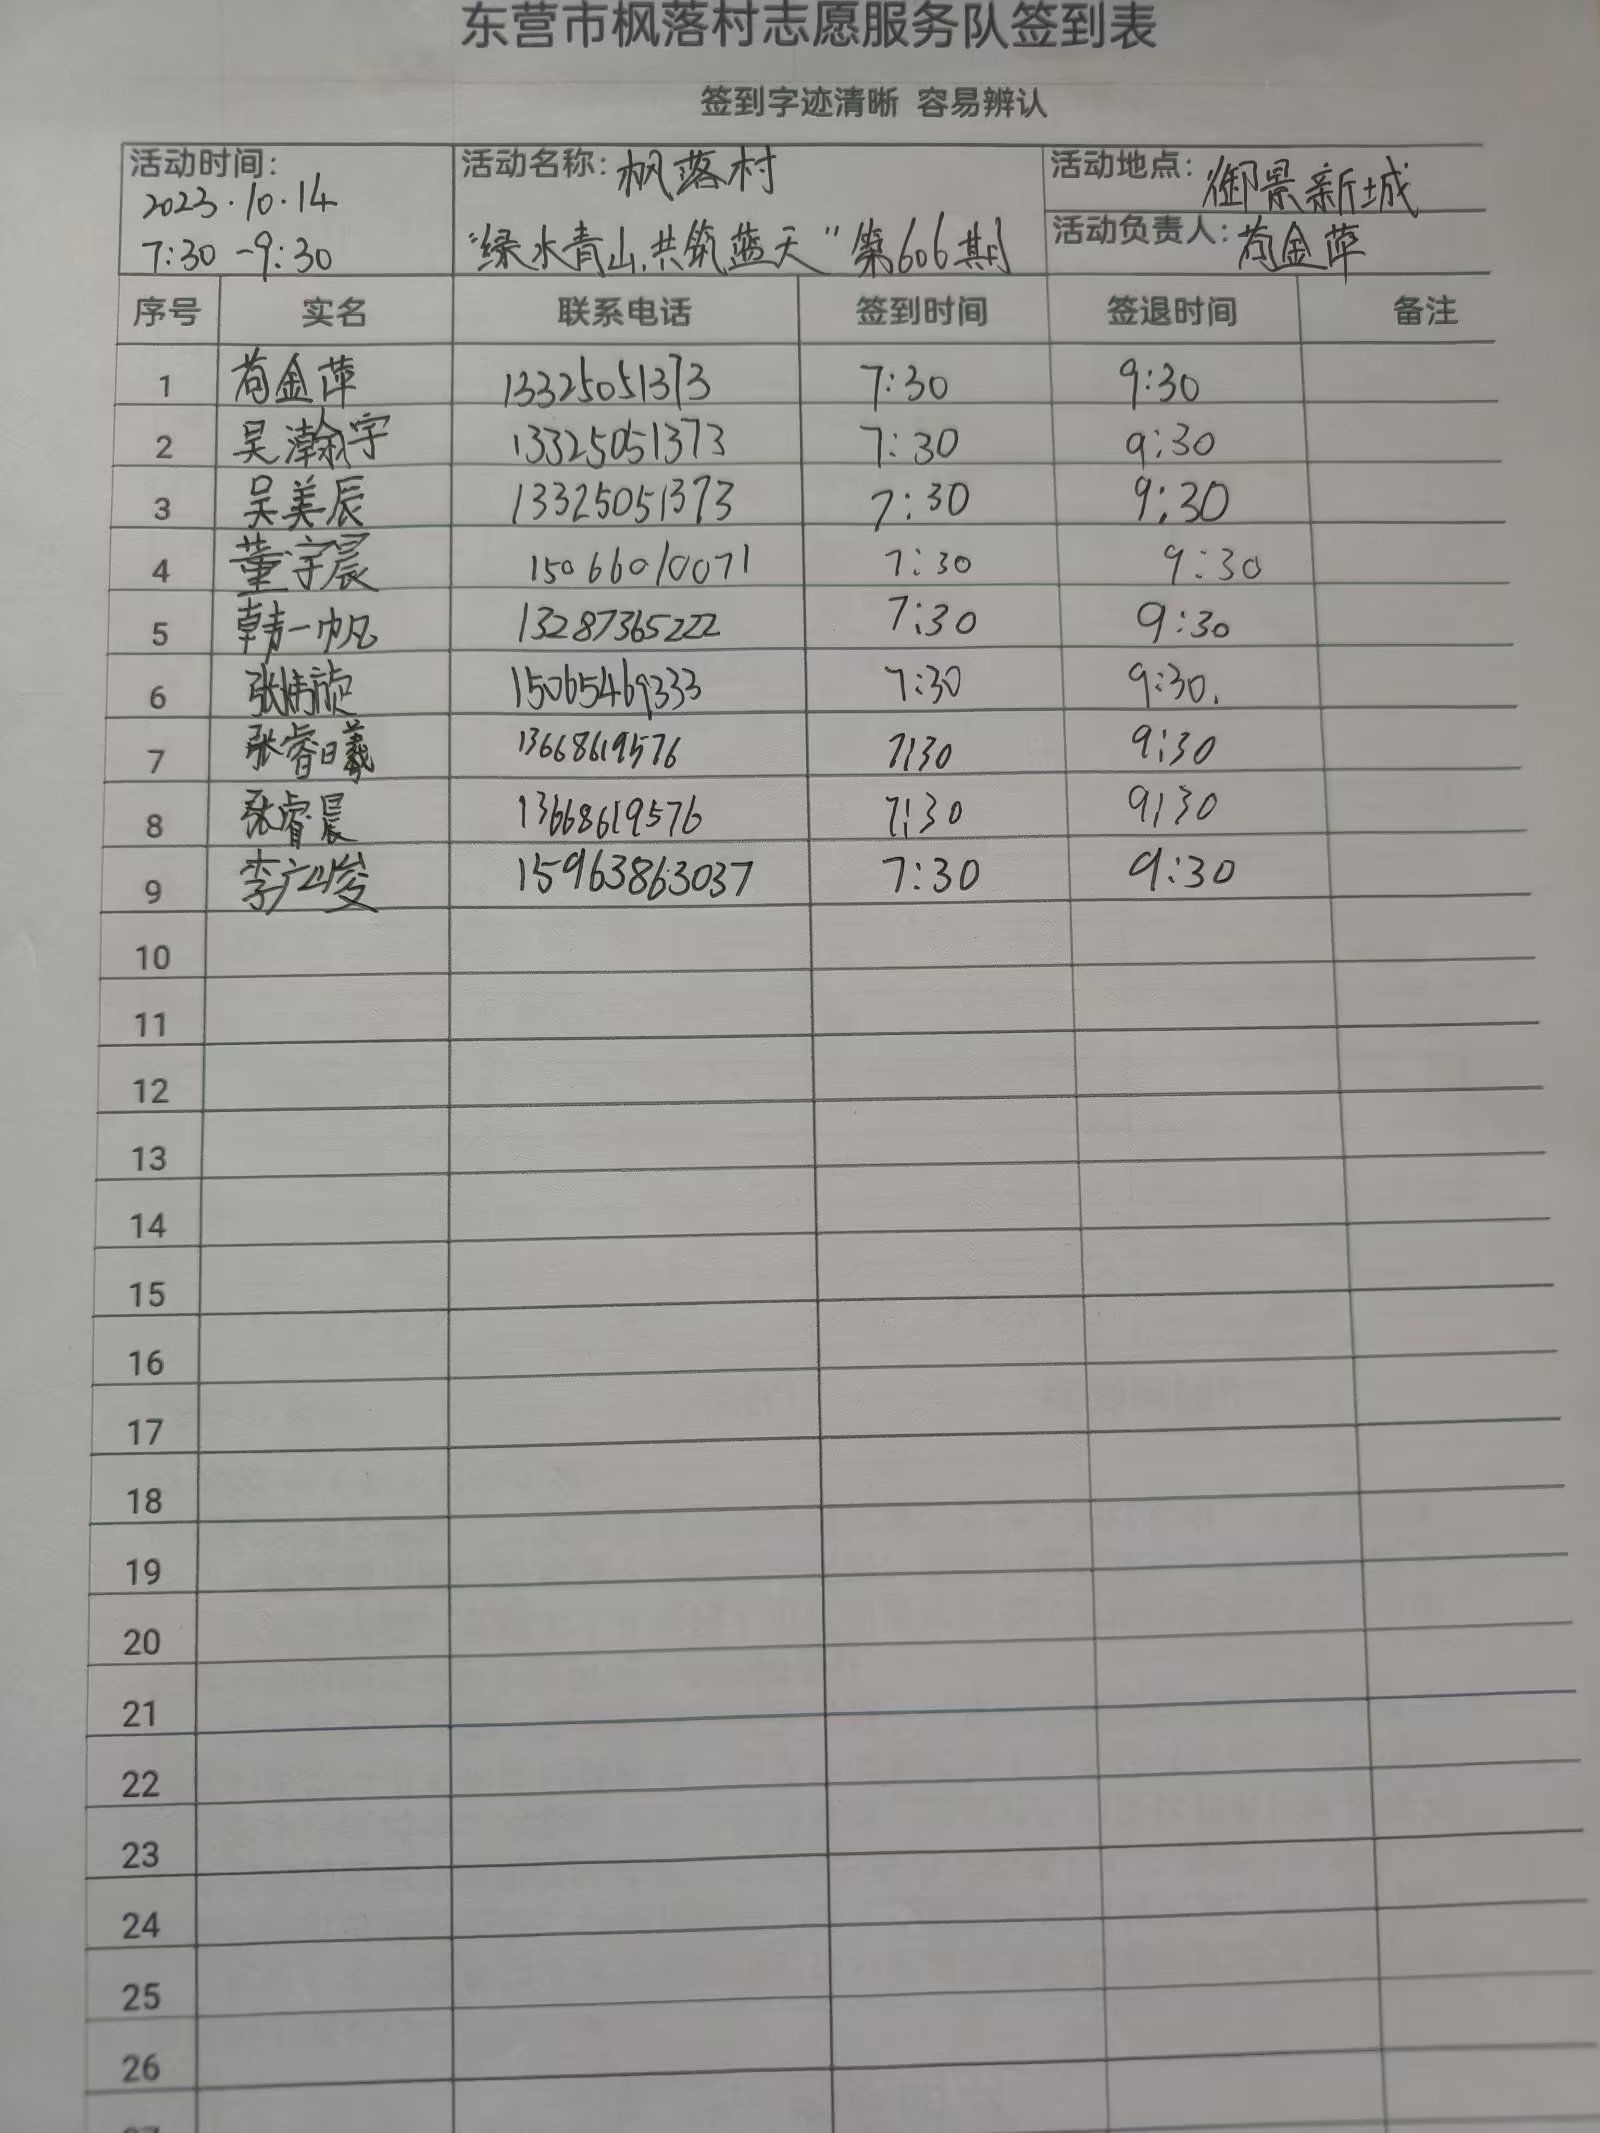 东营市枫落村志愿服务队签到表
签到字迹清晰 容易辨认
活动时间: 2023.10.14 7:30-9:30
活动名称: 枫落村 "绿水青山,共筑蓝天"第606期
活动地点: 御景新城
活动负责人: 苟金萍
序号 实名 联系电话 签到时间 签退时间 备注
1 苟金萍 13325051373 7:30 9:30
2 吴瀚宇 13325051373 7:30 9:30
3 吴美辰 13325051373 7:30 9:30
4 董宇晨 15066010071 7:30 9:30
5 韩一帆 13287365222 7:30 9:30
6 张 15065469333 7:30 9:30.
7 张睿曦 13668619576 7:30 9:30
8 张睿晨 13668619576 7:30 9:30
9 李 15963863037 7:30 9:30
10
11
12
13
14
15
16
17
18
19
20
21
22
23
24
25
26